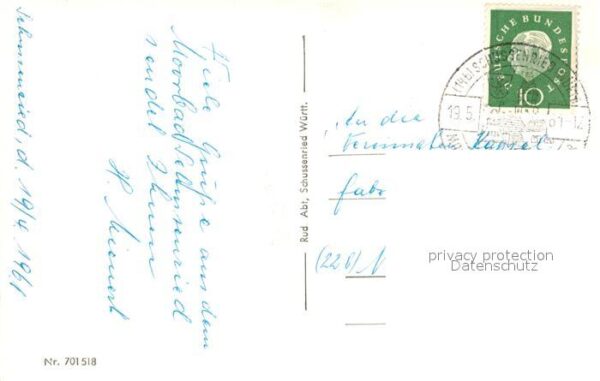 Schussenried, d. 19/4. 1961
Viele Grüße aus dem
Moorbad Schussenried
sendet Ihnen
H.
Nr. 701518
Rud Abt, Schussenried Württ.
DEUTSCHE BUNDESPOST
10
(14b) SCHUSSENRIED
19.5.
An die
Kassel
(22b)
privacy protection
Datenschutz